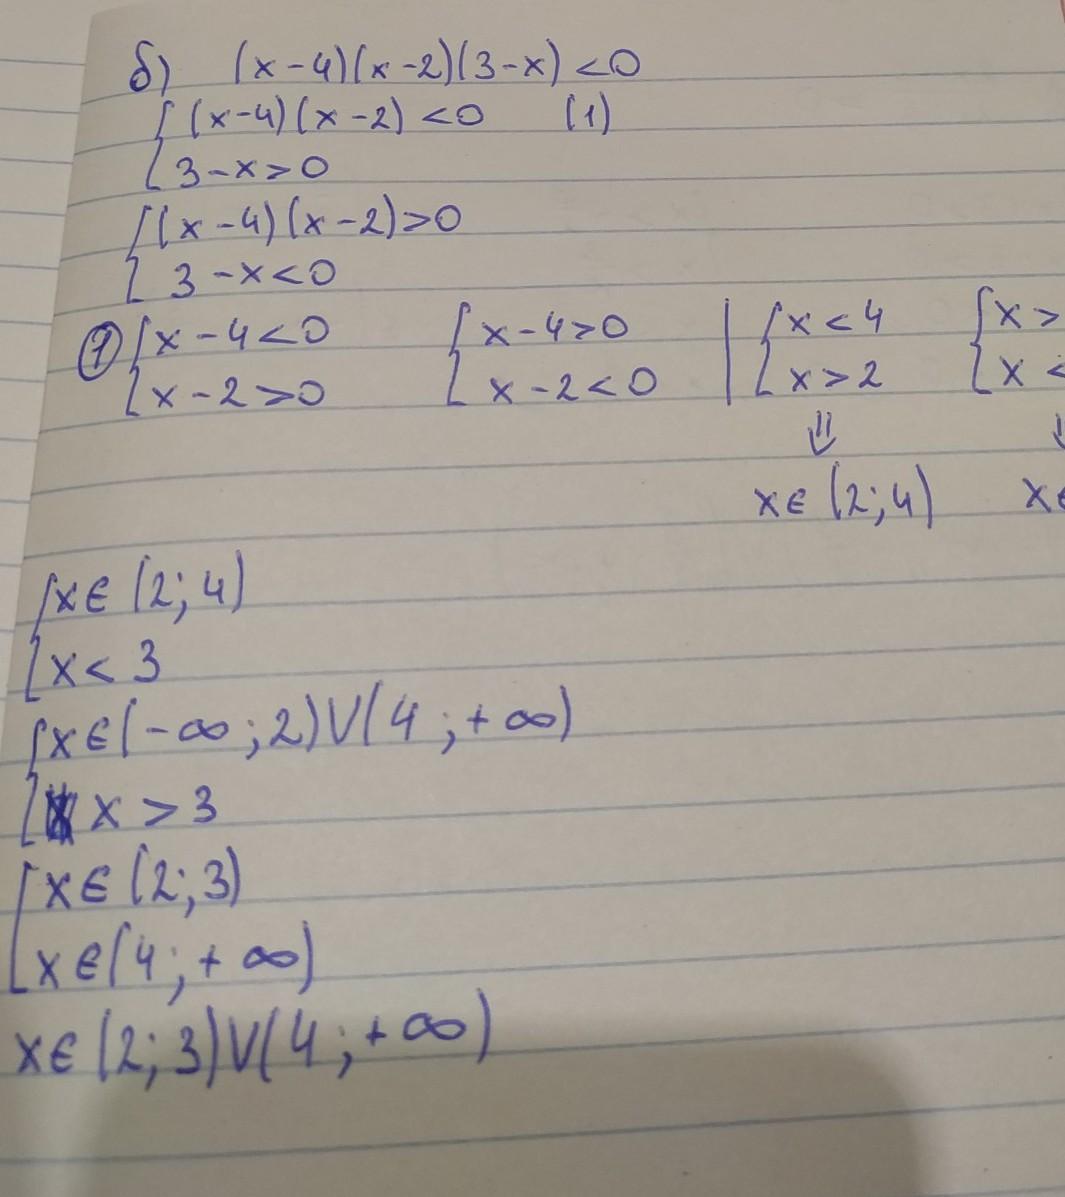 б) (x-4)(x-2)(3-x)<0
{(x-4)(x-2)<0 (1)
{3-x>0
{(x-4)(x-2)>0
{3-x<0
① {x-4<0 {x-4>0 | {x<4 {x>
{x-2>0 {x-2<0 | {x>2 {x<
⇓ ⇓
x∈(2;4) x∈
{x∈(2;4)
{x<3
{x∈(-∞;2)V(4;+∞)
{x>3
[x∈(2;3)
[x∈(4;+∞)
x∈(2;3)V(4;+∞)